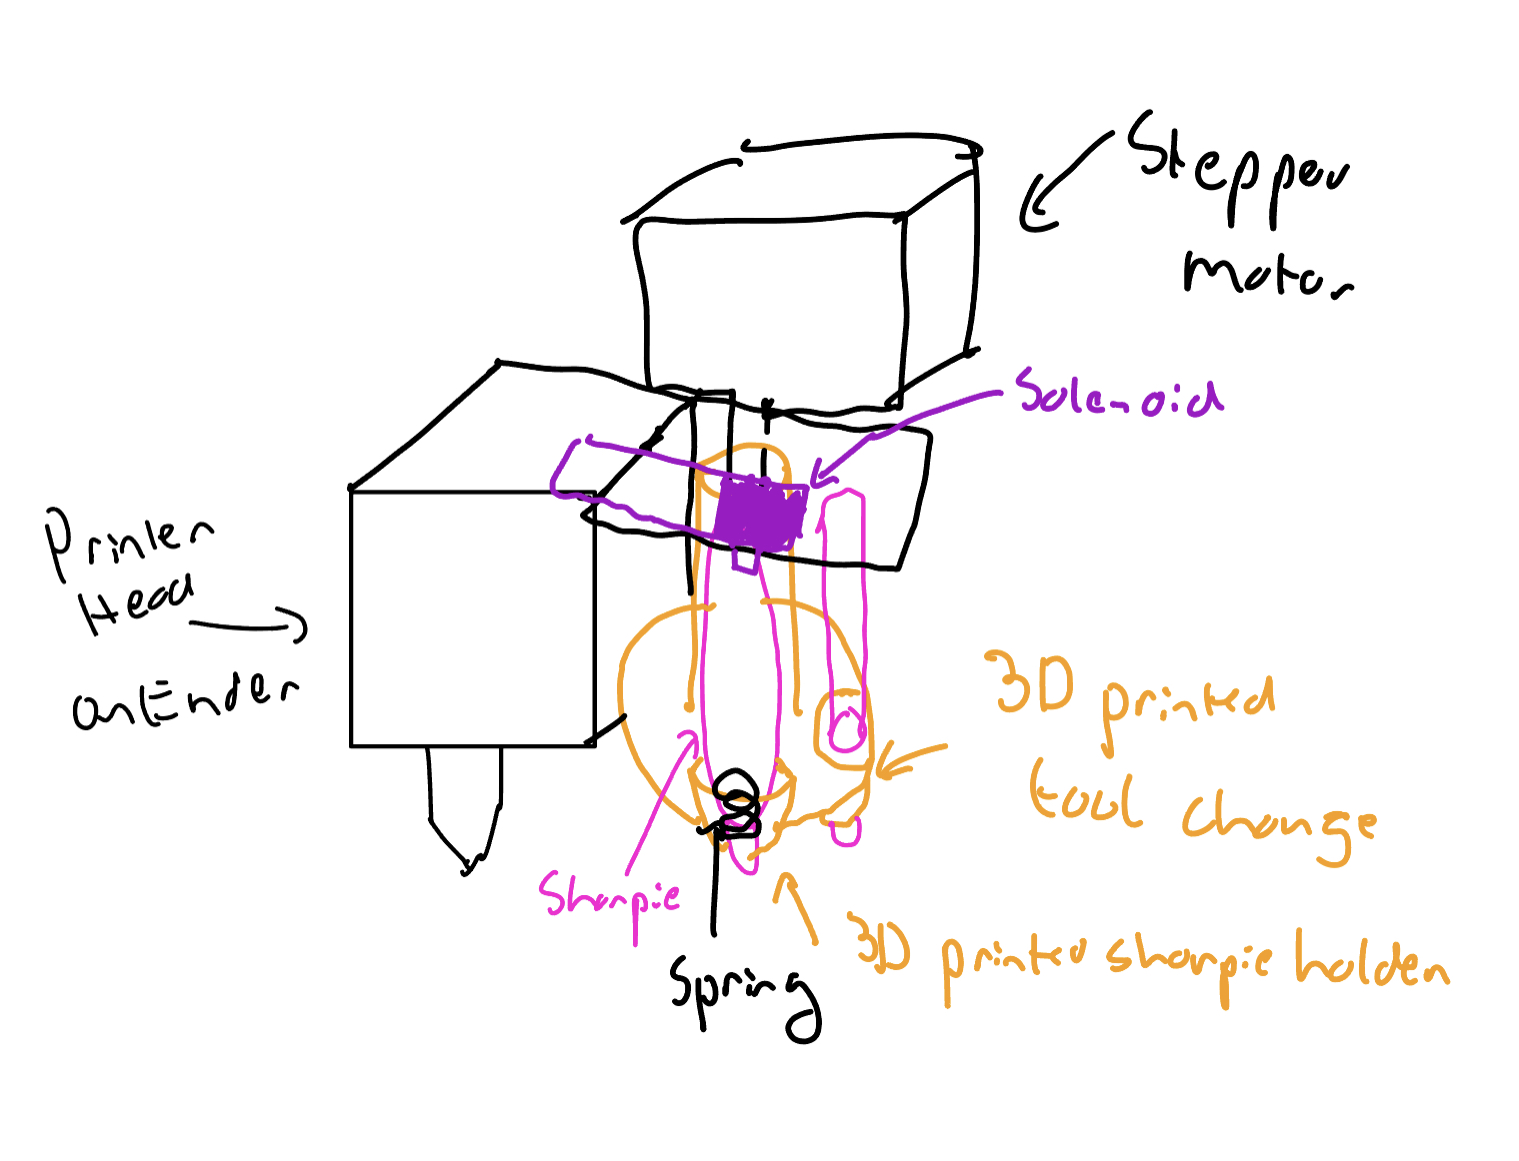 Stepper
motor
Solenoid
Printer
Head
on Ender
3D printed
tool change
Sharpie
3D printed sharpie holder
Spring